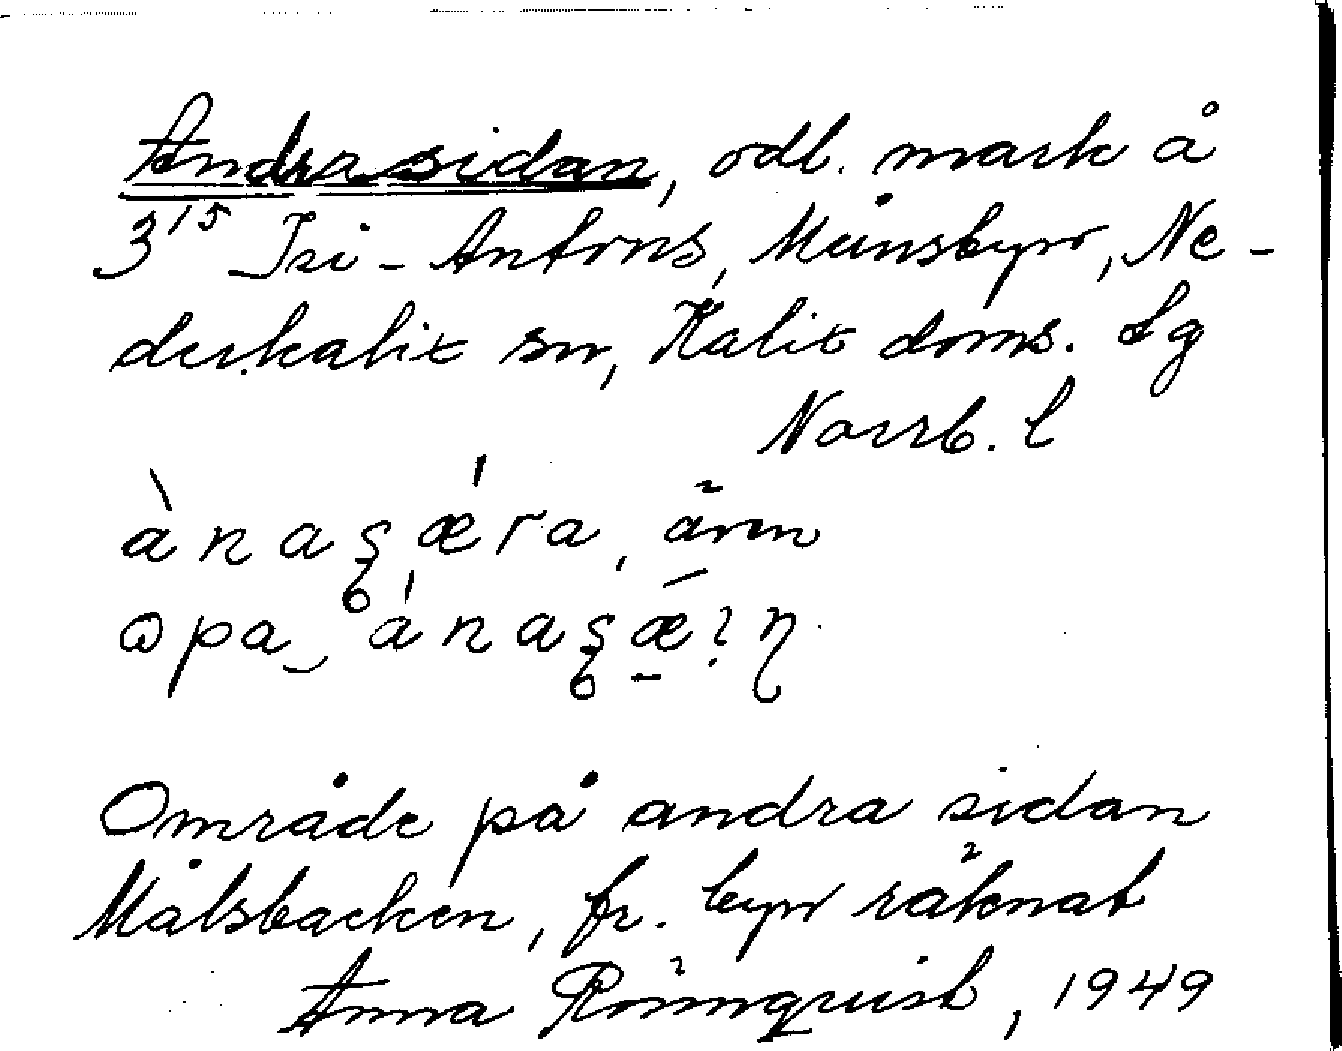 Andra sidan, odl. mark å
3¹⁵ Isi-Antons, Månsbyn, Ne-
derkalix sn, Kalix doms. lg
Norrb. l
ànaʂǽra, även
ɷpa‿ánaʂǽ̱ŋ
Område på andra sidan
Målsbacken, fr. byn räknat
Anna Rönnquist, 1949